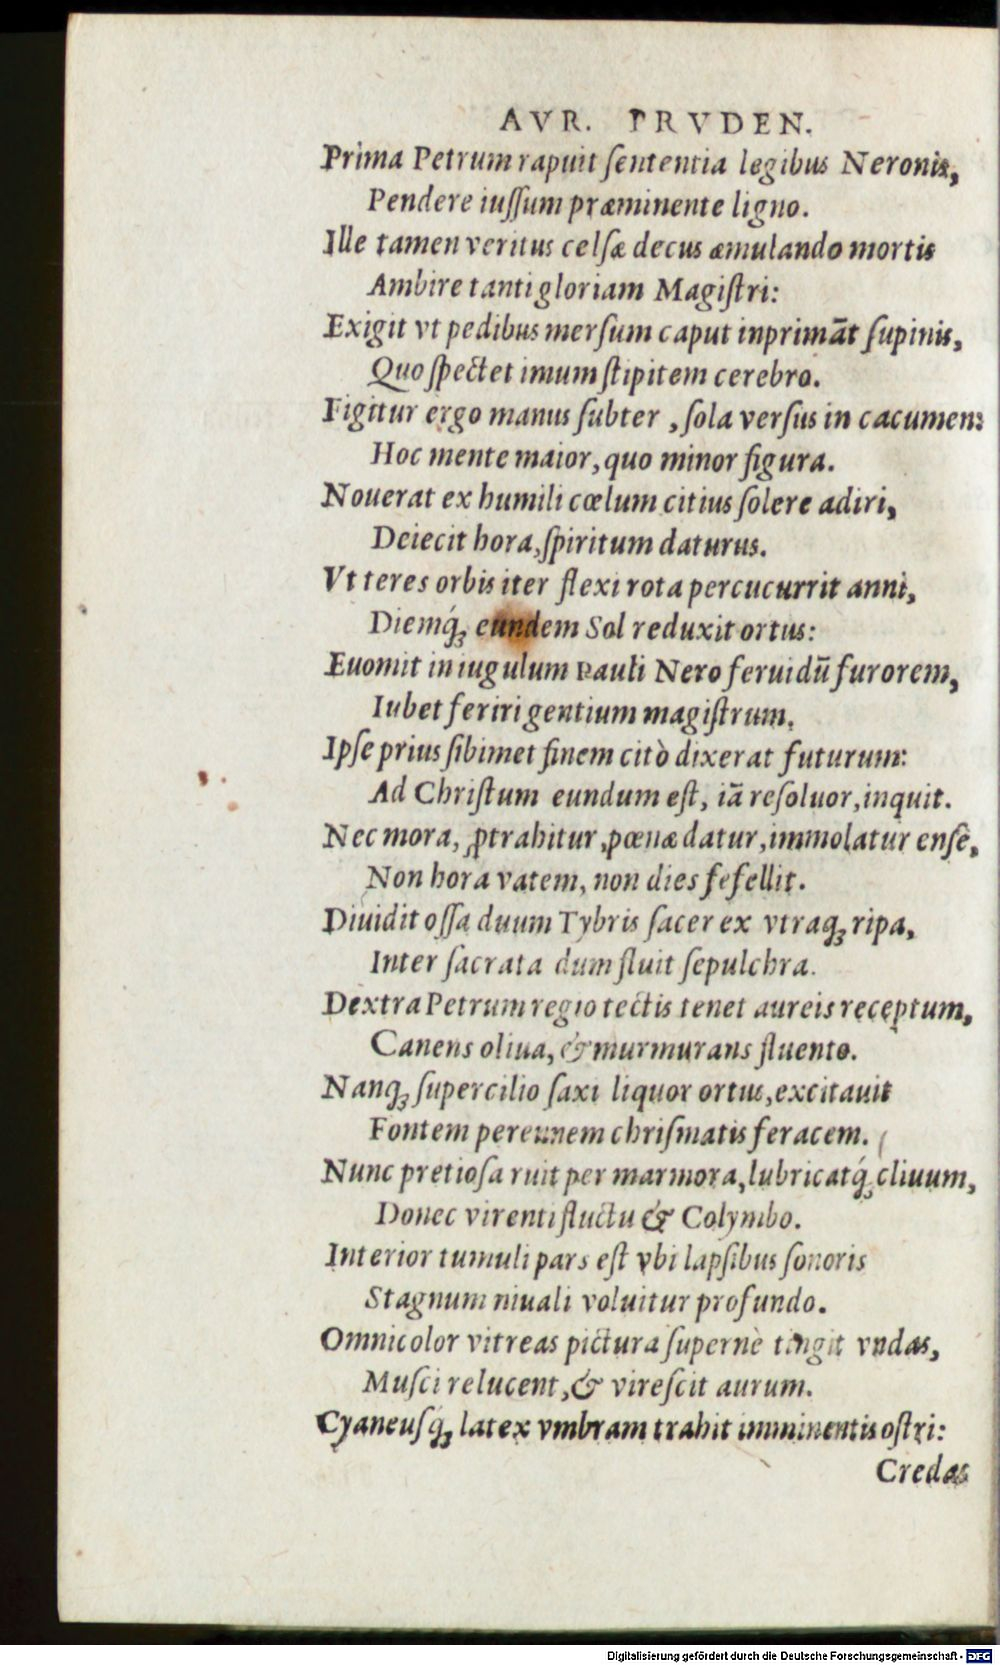 AVR. PRVDEN.
Prima Petrum rapuit ſententia legibus Neronis,
Pendere iuſſum præminente ligno.
Ille tamen veritus celſæ decus æmulando mortis
Ambire tanti gloriam Magiſtri:
Exigit vt pedibus merſum caput inprimāt ſupinis,
Quo ſpectet imum ſtipitem cerebro.
Figitur ergo manus ſubter, ſola verſus in cacumen:
Hoc mente maior, quo minor figura.
Nouerat ex humili cœlum citius ſolere adiri,
Deiecit hora, ſpiritum daturus.
Vt teres orbis iter flexi rota percucurrit anni,
Diemq́ꝫ eundem Sol reduxit ortus:
Euomit in iugulum Pauli Nero feruidū furorem,
Iubet feriri gentium magiſtrum.
Ipſe prius ſibimet finem citò dixerat futurum:
Ad Chriſtum eundum eſt, iā reſoluor, inquit.
Nec mora, ꝓtrahitur, pœnæ datur, immolatur enſe,
Non hora vatem, non dies fefellit.
Diuidit oſſa duum Tybris ſacer ex vtraqꝫ ripa,
Inter ſacrata dum fluit ſepulchra.
Dextra Petrum regio tectis tenet aureis receptum,
Canens oliua, & murmurans fluento.
Nanqꝫ ſupercilio ſaxi liquor ortus, excitauit
Fontem perennem chriſmatis feracem.
Nunc pretioſa ruit per marmora, lubricatq́ꝫ cliuum,
Donec virenti fluctu & Colymbo.
Interior tumuli pars eſt vbi lapſibus ſonoris
Stagnum niuali voluitur profundo.
Omnicolor vitreas pictura ſupernè tingit vndas,
Muſci relucent, & vireſcit aurum.
Cyaneuſq́ꝫ latex vmbram trahit imminentis oſtri:
Credas
Digitalisierung gefördert durch die Deutsche Forschungsgemeinschaft - DFG